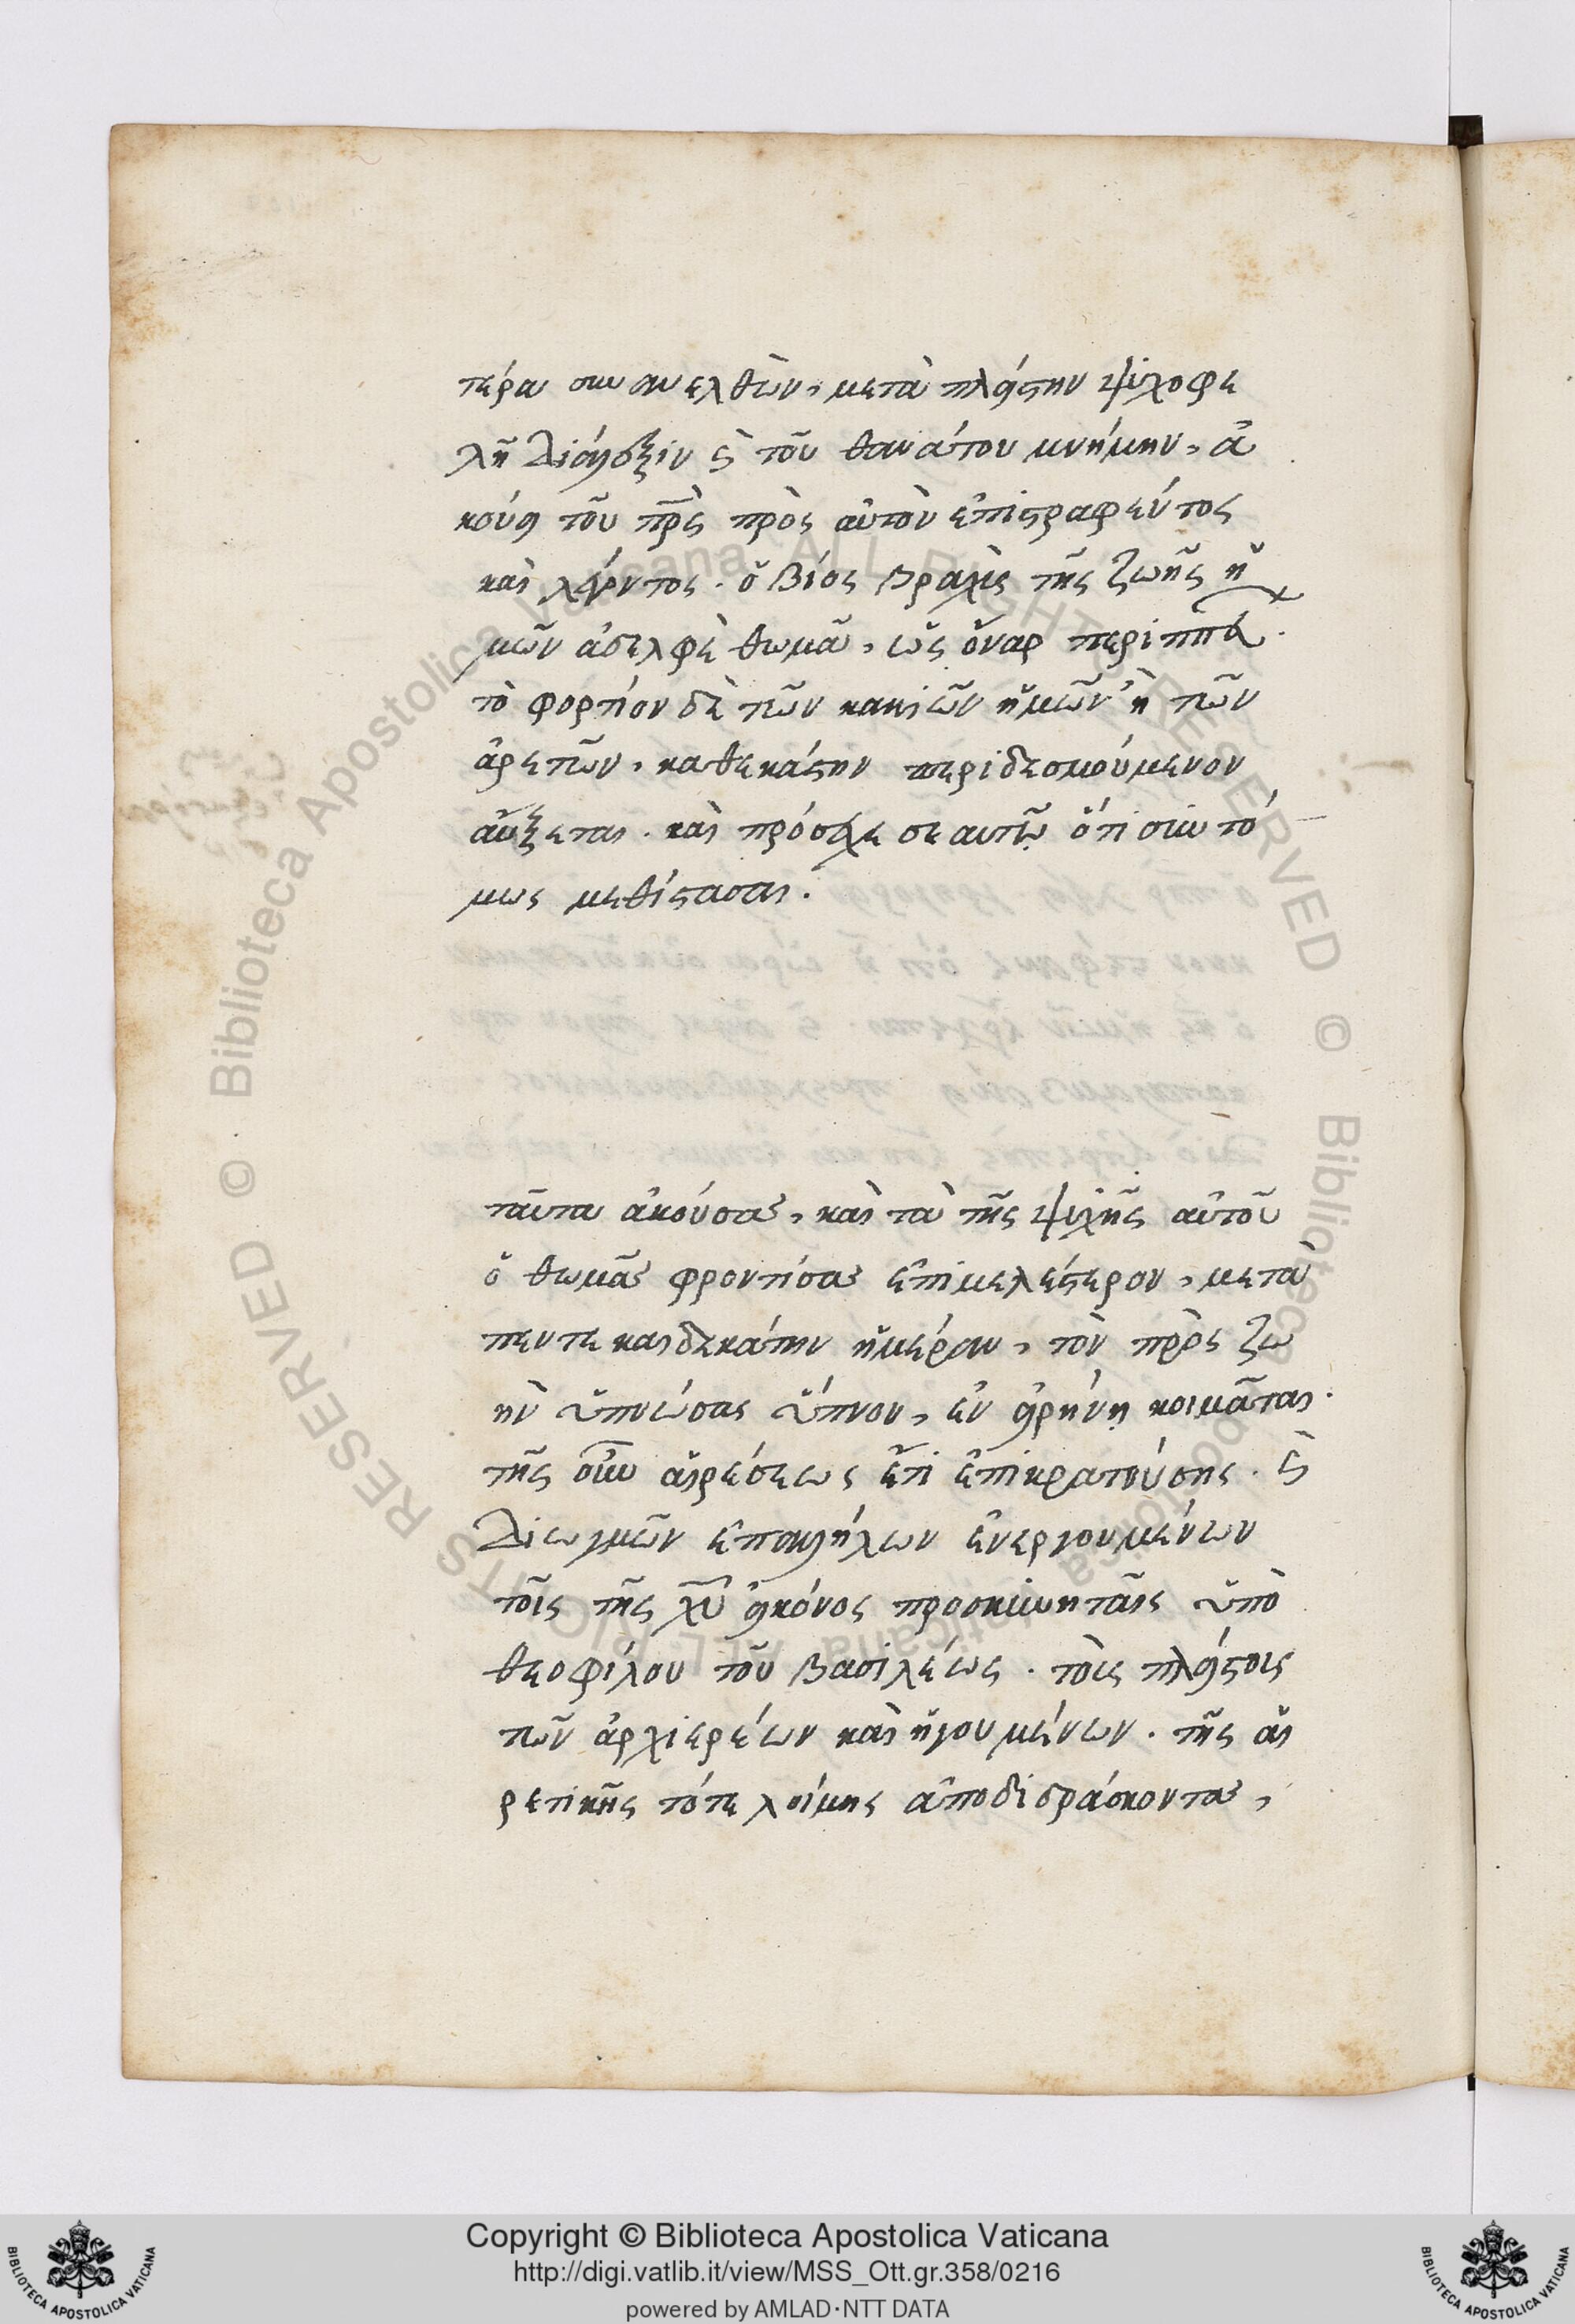 τέρα συνανελθὼν, μετὰ πλείστην ψυχοφε
λῆ διάλεξιν κὶ τοῦ θανάτου μνήμην, ἀ
κούει τοῦ πρ̅ς πρὸς αὐτὸν ἐπιστραφέντος
καὶ λέγοντος. ὁ βίος βραχὺς τῆς ζωῆς ἡ
μῶν ἀδελφὲ θωμᾶ, ὡς ὄναρ
τὸ φορτίον δὲ τῶν κακιῶν ἡμῶν ἢ τῶν
ἀρετῶν, καθεκάστην περιδεσμούμενον
αὔξεται. καὶ πρόσεχε σεαυτῷ ὅτι συντό
μως μεθίστασαι.
ταῦτα ἀκούσας, καὶ τὰ τῆς ψυχῆς αὐτοῦ
ὁ θωμᾶς φροντίσας ἐπιμελέστερον, μετὰ
πεντεκαιδεκάτην ἡμέραν, τὸν πρὸς ζω
ὴν ὑπνώσας ὕπνον, ἐν εἰρήνῃ κοιμᾶται.
τῆς οὖν αἱρέσεως ἔτι ἐπικρατούσης. κὶ
διωγμῶν ἐπαλλήλων ἐνεργουμένων
τοῖς τῆς χ̅υ εἰκόνος προσκυνηταῖς ὑπὸ
θεοφίλου τοῦ βασιλέως. τοῖς πλείστοις
τῶν ἀρχιερέων καὶ ἡγουμένων. τῆς αἱ
ρετικῆς τότε λοίμης ἀποδιδράσκοντας,
© Biblioteca Apostolica Vaticana. ALL RIGHTS RESERVED © Biblioteca Apostolica Vaticana. ALL RIGHTS RESERVED
Copyright © Biblioteca Apostolica Vaticana
http://digi.vatlib.it/view/MSS_Ott.gr.358/0216
powered by AMLAD·NTT DATA
BIBLIOTECA APOSTOLICA VATICANA
BIBLIOTECA APOSTOLICA VATICANA